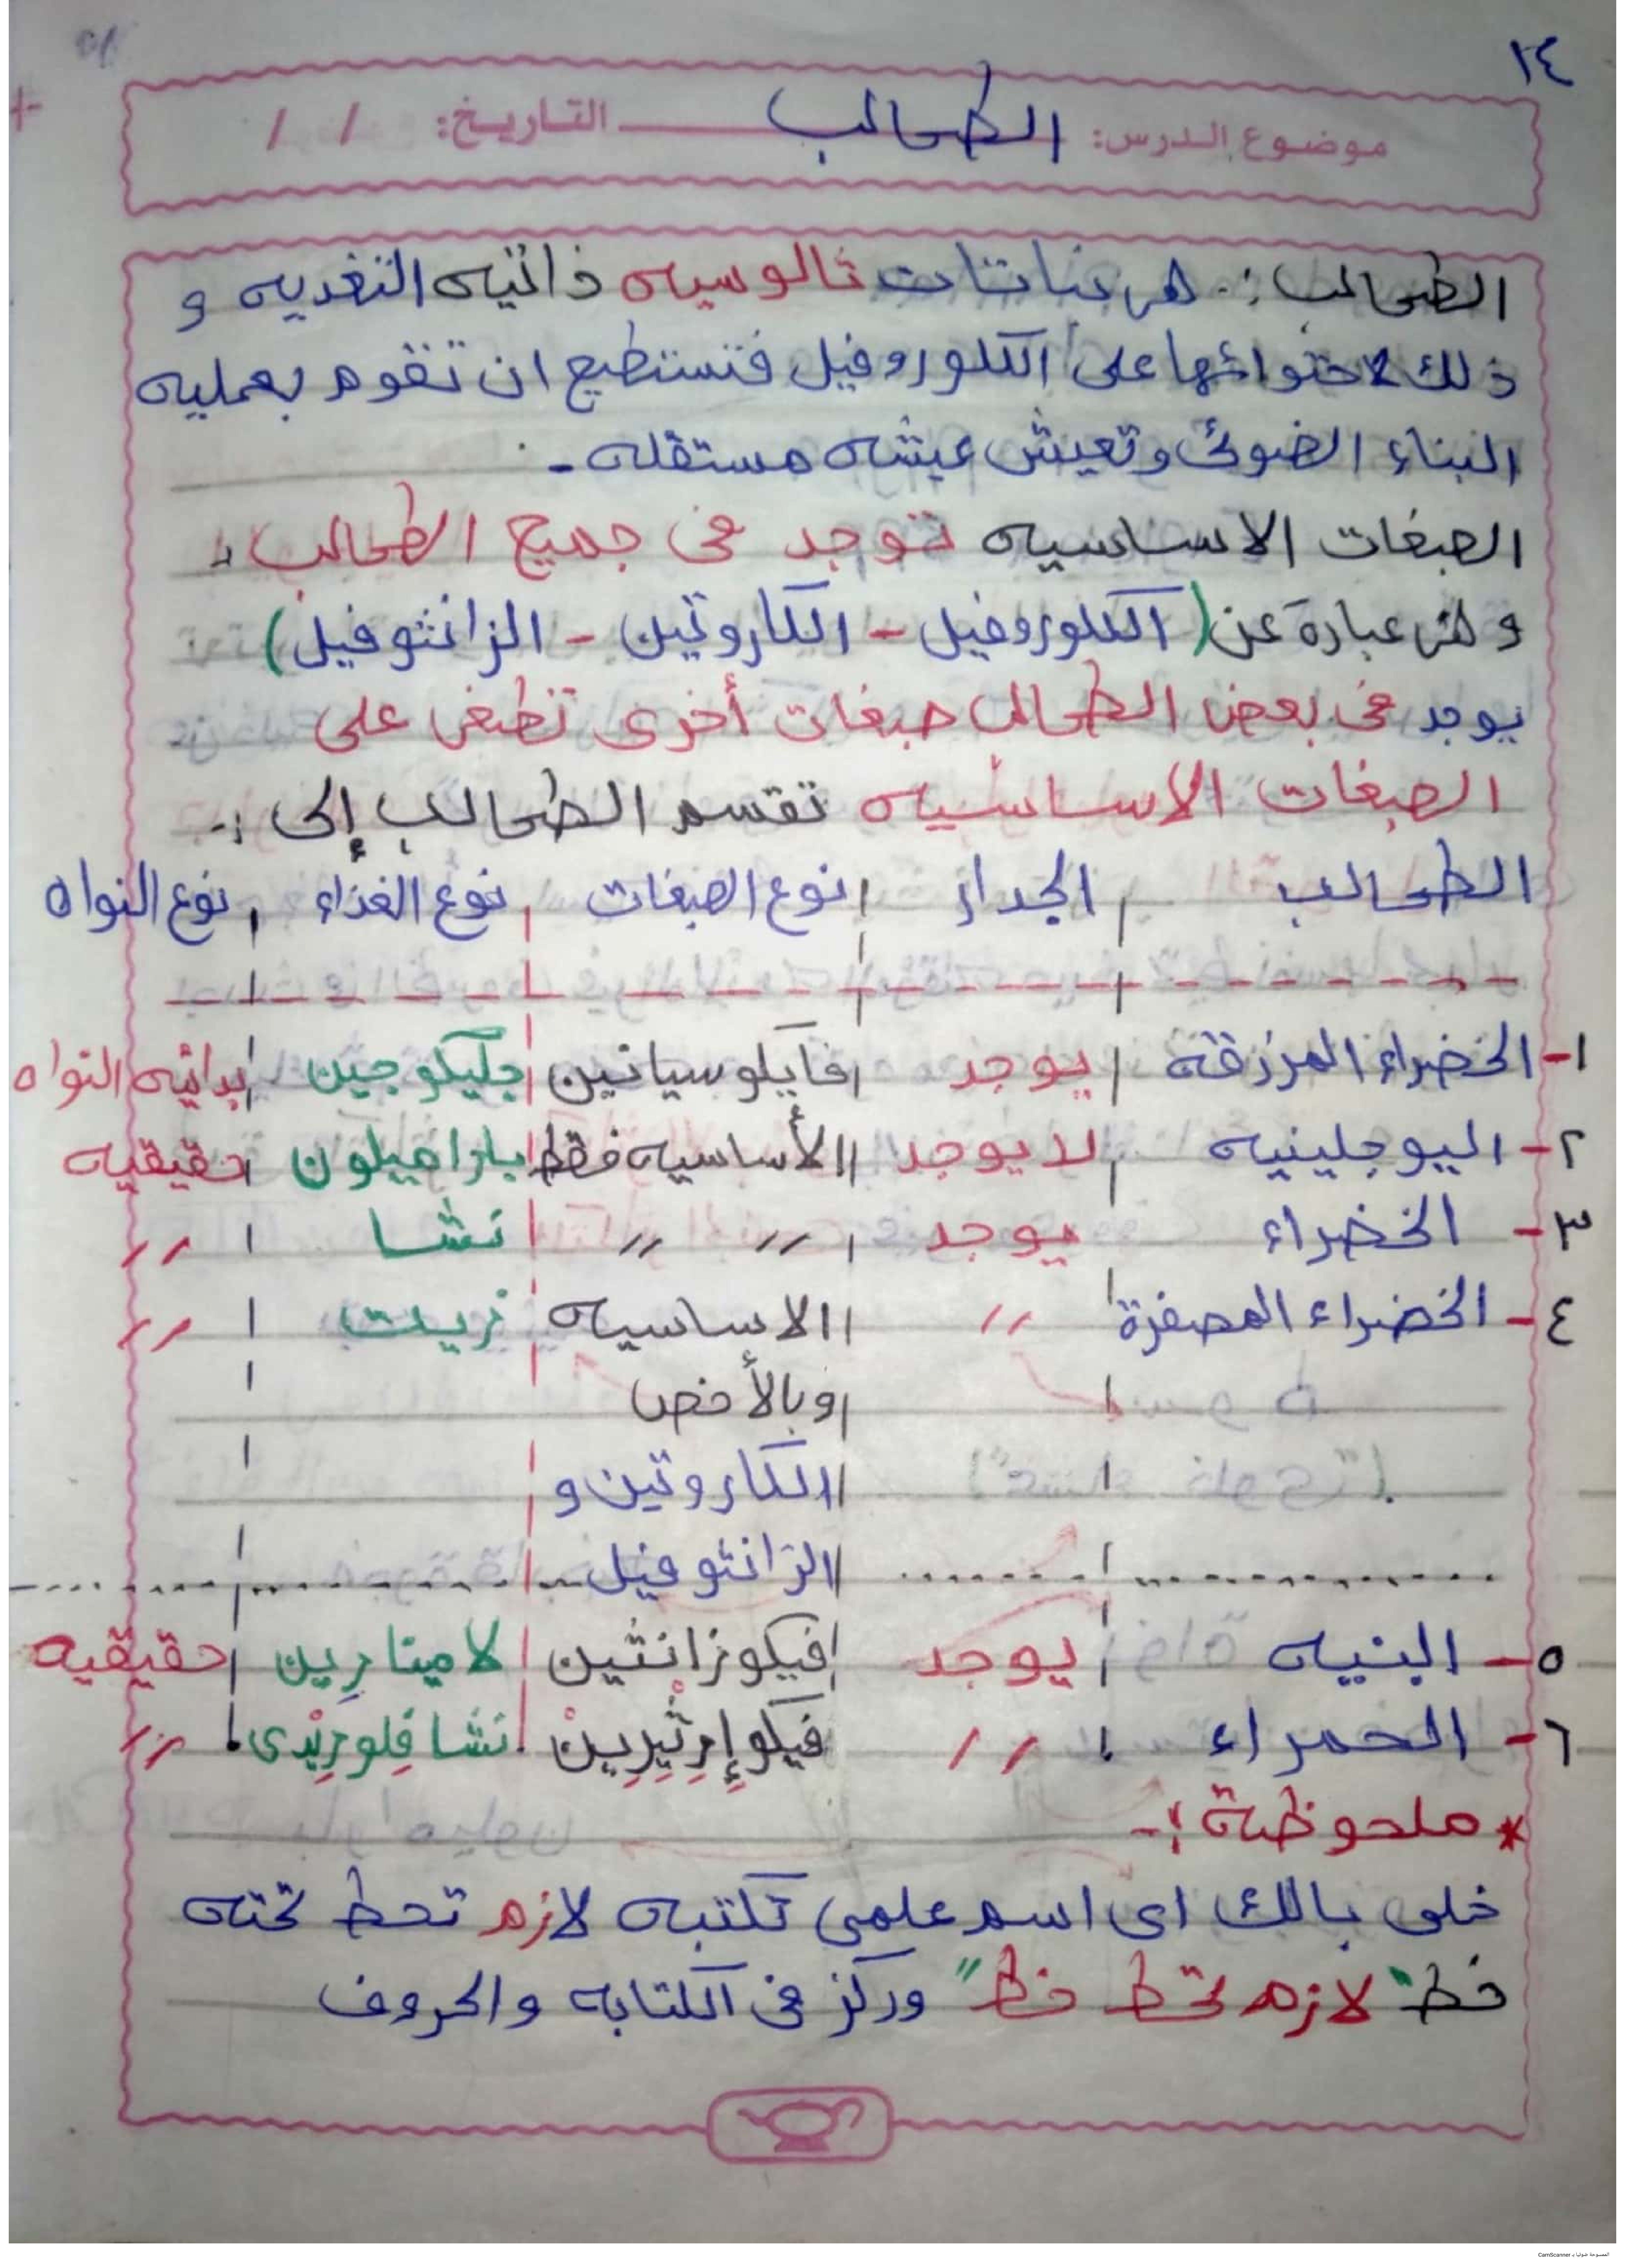 ١٤
موضوع الدرس: الطحالب التاريخ: / /
الطحالب :- هى نباتات ثالوسيه ذاتيه التغذيه و
ذلك لاحتوائها على الكلوروفيل فتستطيع ان تقوم بعمليه
البناء الضوئى وتعيش عيشه مستقله .
الصبغات الاساسيه توجد فى جميع الطحالب ،
و هى عبارة عن ( الكلوروفيل - الكاروتين - الزانثوفيل )
يوجد فى بعض الطحالب صبغات أخرى تطغى على
الصبغات الاساسيه تقسم الطحالب إلى :-
الطحالب | الجدار | نوع الصبغات | نوع الغذاء | نوع النواه
١- الخضراء المزرقه | يوجد | فايلوسيانين | جليكوجين | بدائيه النواه
٢- اليوجلينيه | لا يوجد | الأساسيه فقط | باراميلون | حقيقيه
٣- الخضراء يوجد | // // | نشا | //
٤- الخضراء المصفرة | // | الاساسيه | زيت | //
| وبالأخص |
| الكاروتين و |
| الزانثوفيل |
٥- البنيه | يوجد | فيكوزانثين | لامينارِين | حقيقيه
٦- الحمراء | // فيكوإِرِثِيرِين | نشا فِلورِيْدى | //
* ملحوظة :-
خلى بالك اى اسم علمى تكتبه لازم تحط تحته
خط " لازم تحط خط " وركز فى الكتابه والحروف
الممسوحة ضوئيا بـ CamScanner